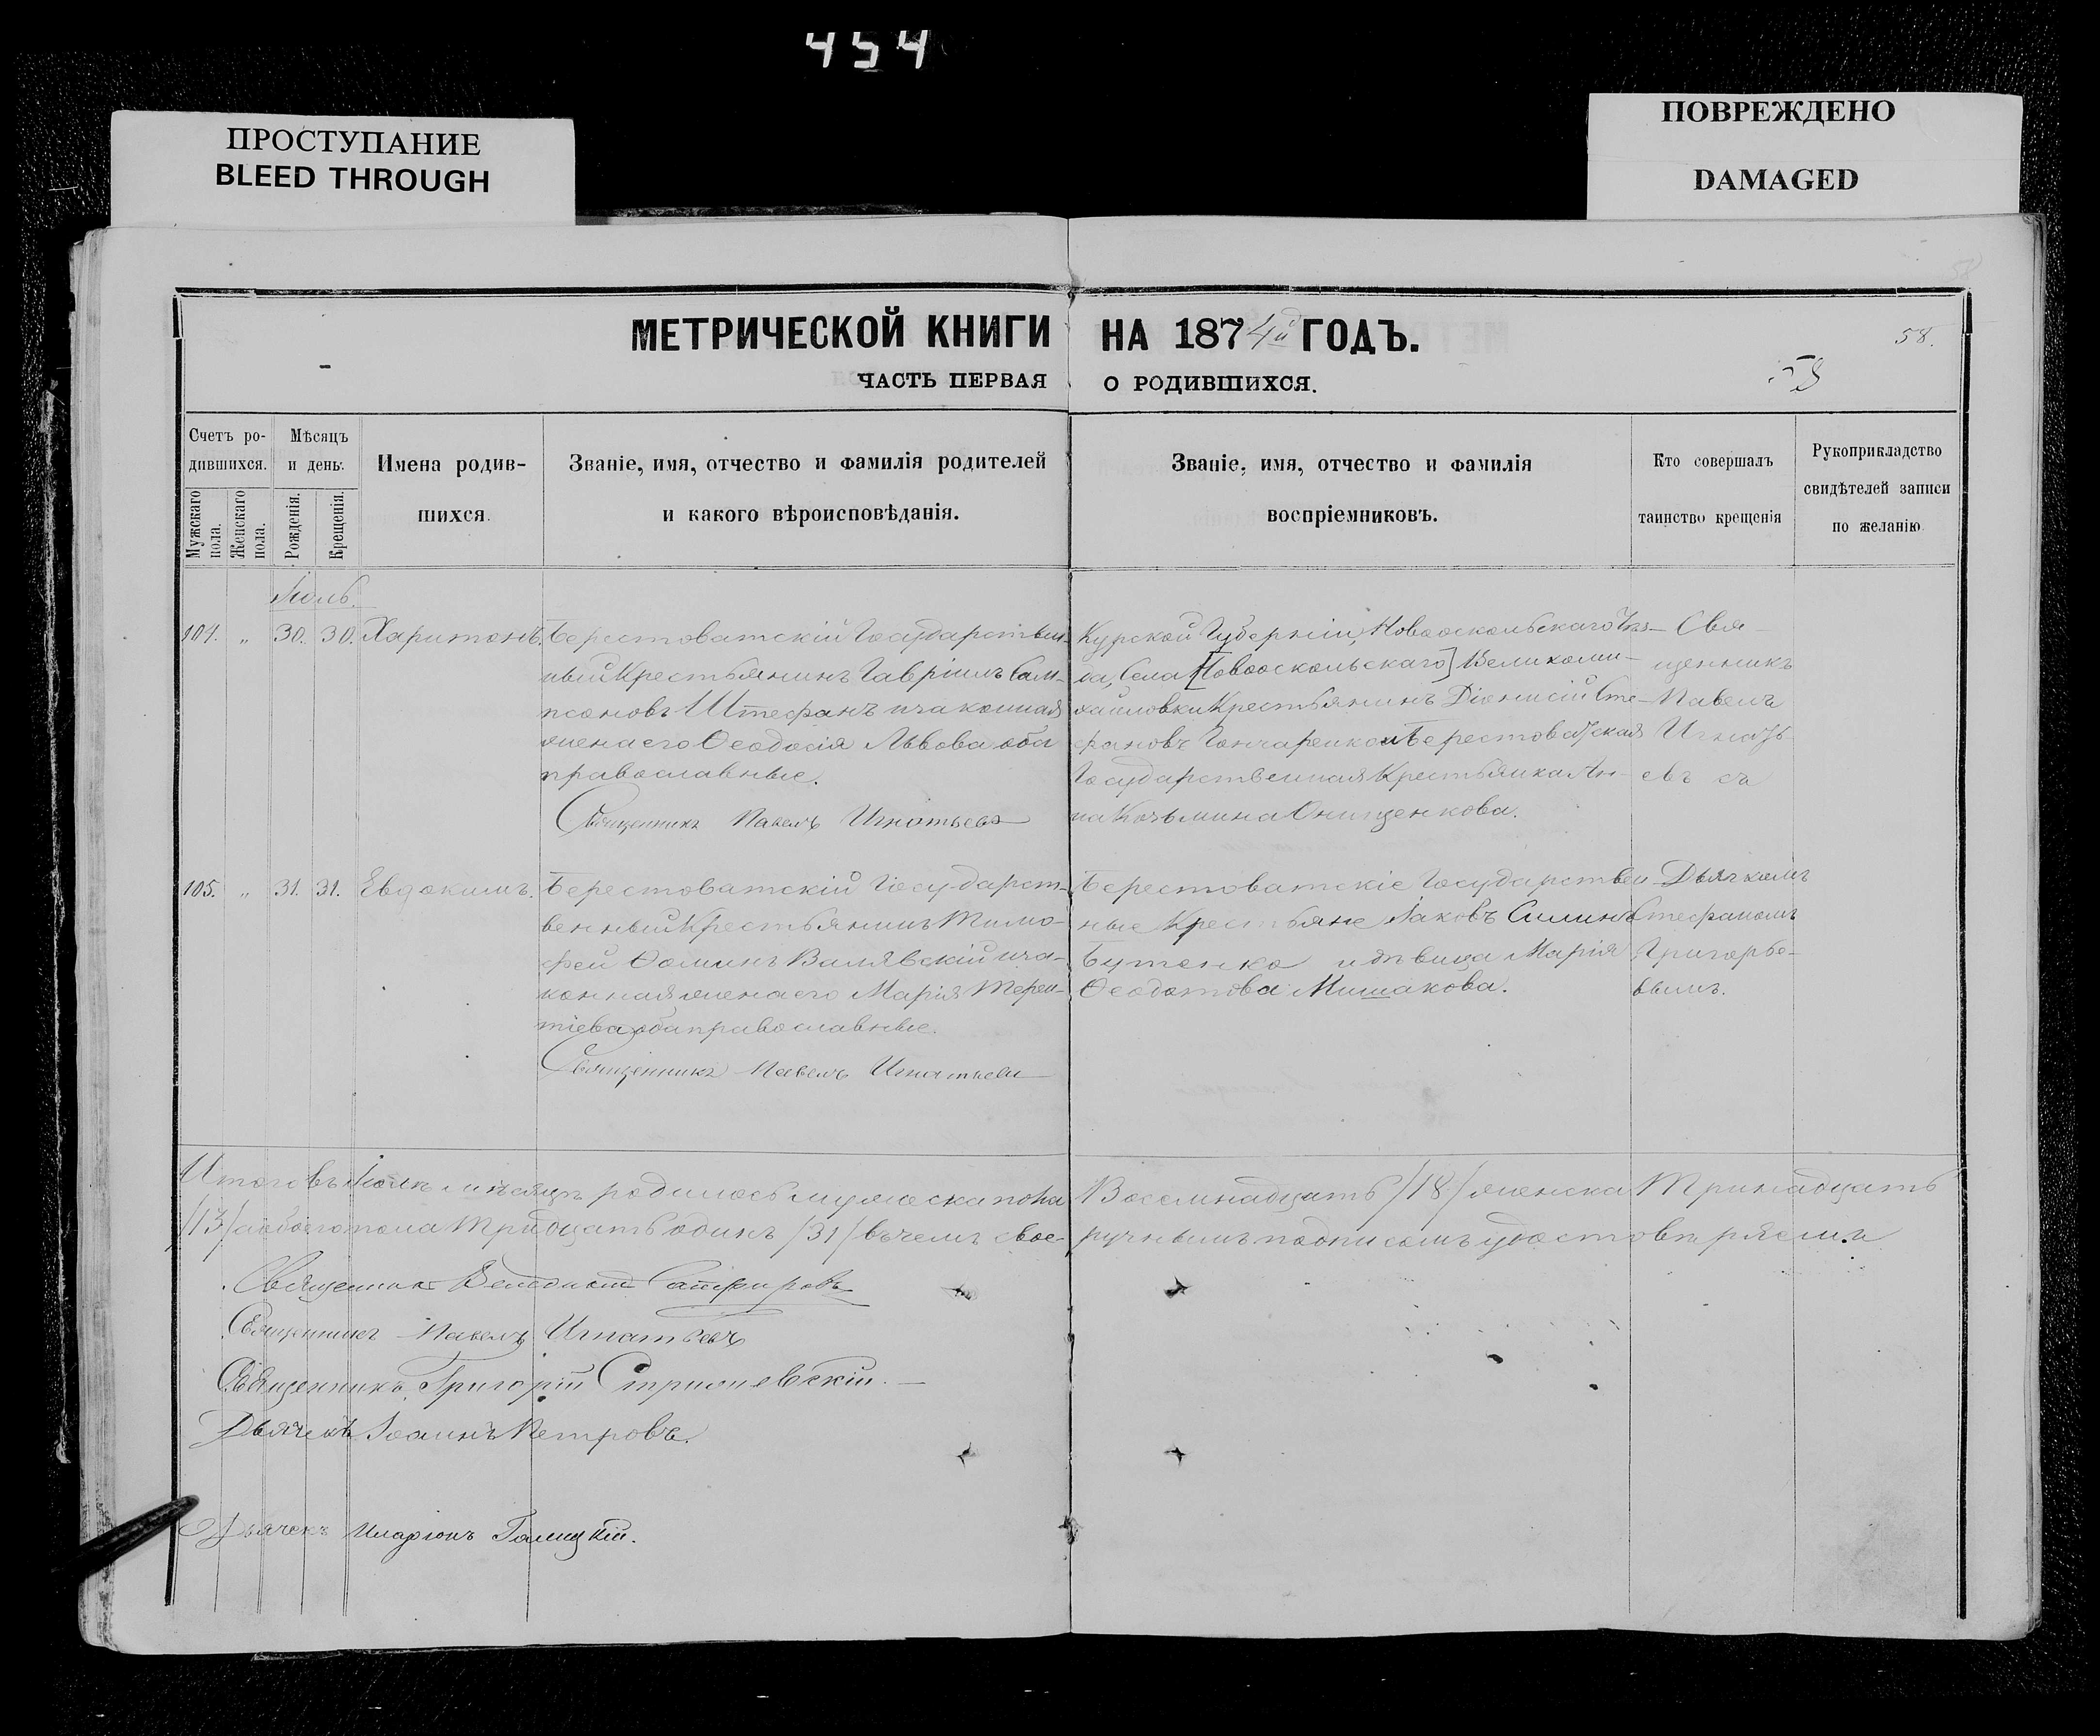 454
ПРОСТУПАНИЕ
BLEED THROUGH
ПОВРЕЖДЕНО
DAMAGED
МЕТРИЧЕСКОЙ КНИГИ НА 1874й ГОДЪ.
58.
58
ЧАСТЬ ПЕРВАЯ О РОДИВШИХСЯ.
Счетъ ро-
дившихся.
Мужскаго пола.
Женскаго пола.
Мѣсяцъ
и день.
Рожденія.
Крещенія.
Имена родив-
шихся.
Званіе, имя, отчество и фамилія родителей
и какого вѣроисповѣданія.
Званіе, имя, отчество и фамилія
воспріемниковъ.
Кто совершалъ
таинство крещенія
Рукоприкладство
свидѣтелей записи
по желанію
Іюль.
104. „ 30. 30. Харитонъ.
Берестоватскій Государствен-
ный Крестьянинъ Гавріилъ Сам-
псоновъ Штефанъ и законная
жена его Ѳеодосія Львова оба
православные.
Священникъ Павелъ Игнатьевъ
Курской Губерніи, Новооскольскаго Уѣз-
да, Села [Новооскольскаго] Великоми-
хайловки Крестьянинъ Діонисій Сте-
фановъ Гончаренко и Берестоватская
Государственная Крестьянка Ан-
на Козьмина Онищенкова.
Свя-
щенникъ
Павелъ
Игнать-
евъ съ
105. „ 31. 31. Евдокимъ.
Берестоватскій Государст-
венный Крестьянинъ Тимо-
фей Ѳоминъ Валявскій и за-
конная жена его Марія Терен-
тіева оба православные.
Священникъ Павелъ Игнатьевъ
Берестоватскіе Государствен-
ные Крестьяне Іаковъ Силинъ
Бутенко и дѣвица Марія
Ѳеодотова Мишакова.
Дьячкомъ
Стефаномъ
Григорье-
вымъ.
Итого въ Іюлѣ мѣсяцѣ родилось мужеска пола Восемнадцать /18/ женска Тринадцать
/13/ а обоего пола Тридцать одинъ /31/ въ чемъ свое- ручнымъ подписомъ удостовѣряемъ
Священникъ Сапфировъ
Священникъ Павелъ Игнатьевъ
Священникъ Григорій Стрижевскій.
Дьячекъ Іоаннъ Петровъ.
Дьячекъ Иларіонъ Галицкій.